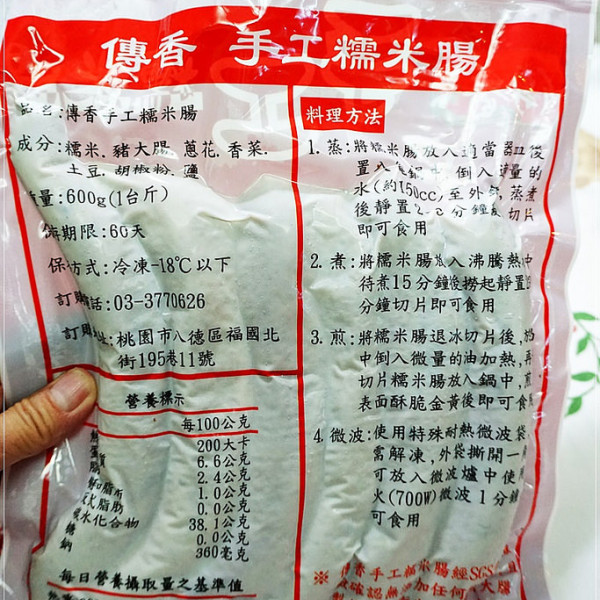 傳香 手工糯米腸
品名:傳香手工糯米腸
成分:糯米.豬大腸.蔥花.香菜.
土豆.胡椒粉.鹽
量:600g(1台斤)
期限:60天
保 方式:冷凍-18℃以下
訂購 話:03-3770626
訂 址:桃園市八德區福國北
街195巷11號
營養標示
每100公克
200大卡
質 6.6公克
2.4公克
和脂肪 1.0公克
式脂肪 0.0公克
水化合物 38.1公克
糖 0.0公克
鈉 360毫克
每日營養攝取量之基準值
料理方法
1. 蒸:將糯米腸放入適當器皿後
置入 鍋中 倒入適量的
水(約150cc)至外 蒸煮
後靜置 分鐘 切片
即可食用
2. 煮:將糯米腸放入沸騰熱 中
待煮15分鐘後撈起靜置
分鐘切片即可食用
3. 煎:將糯米腸退冰切片後,
中倒入微量的油加熱,再
切片糯米腸放入鍋中,煎
表面酥脆金黃後即可食用
4. 微波:使用特殊耐熱微波袋
需解凍,外袋撕開一
可放入微波爐中使
火(700W)微波1分鐘
可食用
※ 傳香手工糯米腸經SGS
確認無 加任何 大腸